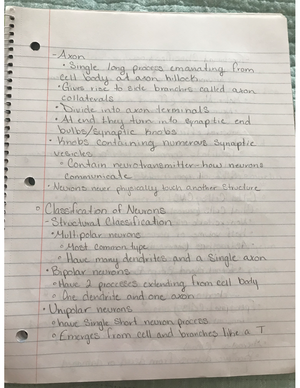 - Axon
• Single long process emanating from
cell body at axon hillock
• Gives rise to side branches called axon
collaterals
• Divide into axon terminals
• At end they turn into synaptic end
bulbs/synaptic knobs
• Knobs containing numerous synaptic
vesicles
◦ Contain neurotransmitter-how neurons
communicate
• Neurons never physically touch another structure
◦ Classification of Neurons
- Structural Classification
• Multipolar neurons
◦ Most common type
◦ Have many dendrites and a single axon
• Bipolar neurons
◦ Have 2 processes extending from cell body
◦ One dendrite and one axon
• Unipolar neurons
◦ have single short neuron process
◦ Emerges from cell and branches like a T